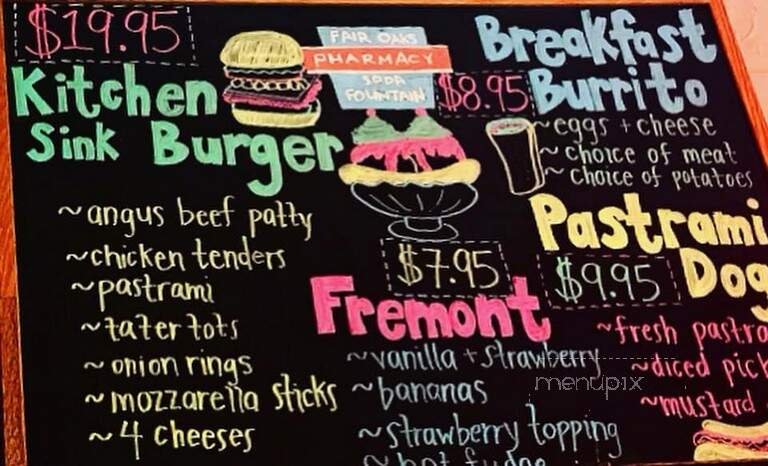 $19.95
Kitchen
Sink Burger
~angus beef patty
~chicken tenders
~pastrami
~tater tots
~onion rings
~mozzarella sticks
~4 cheeses
FAIR OAKS
PHARMACY
SODA
FOUNTAIN
$7.95
Fremont
~vanilla + strawberry
~bananas
~strawberry topping
~hot fudge
Breakfast
$8.95 Burrito
~eggs + cheese
~choice of meat
~choice of potatoes
Pastrami
$9.95 Dog
~fresh pastra
~diced pick
~mustard
menupix